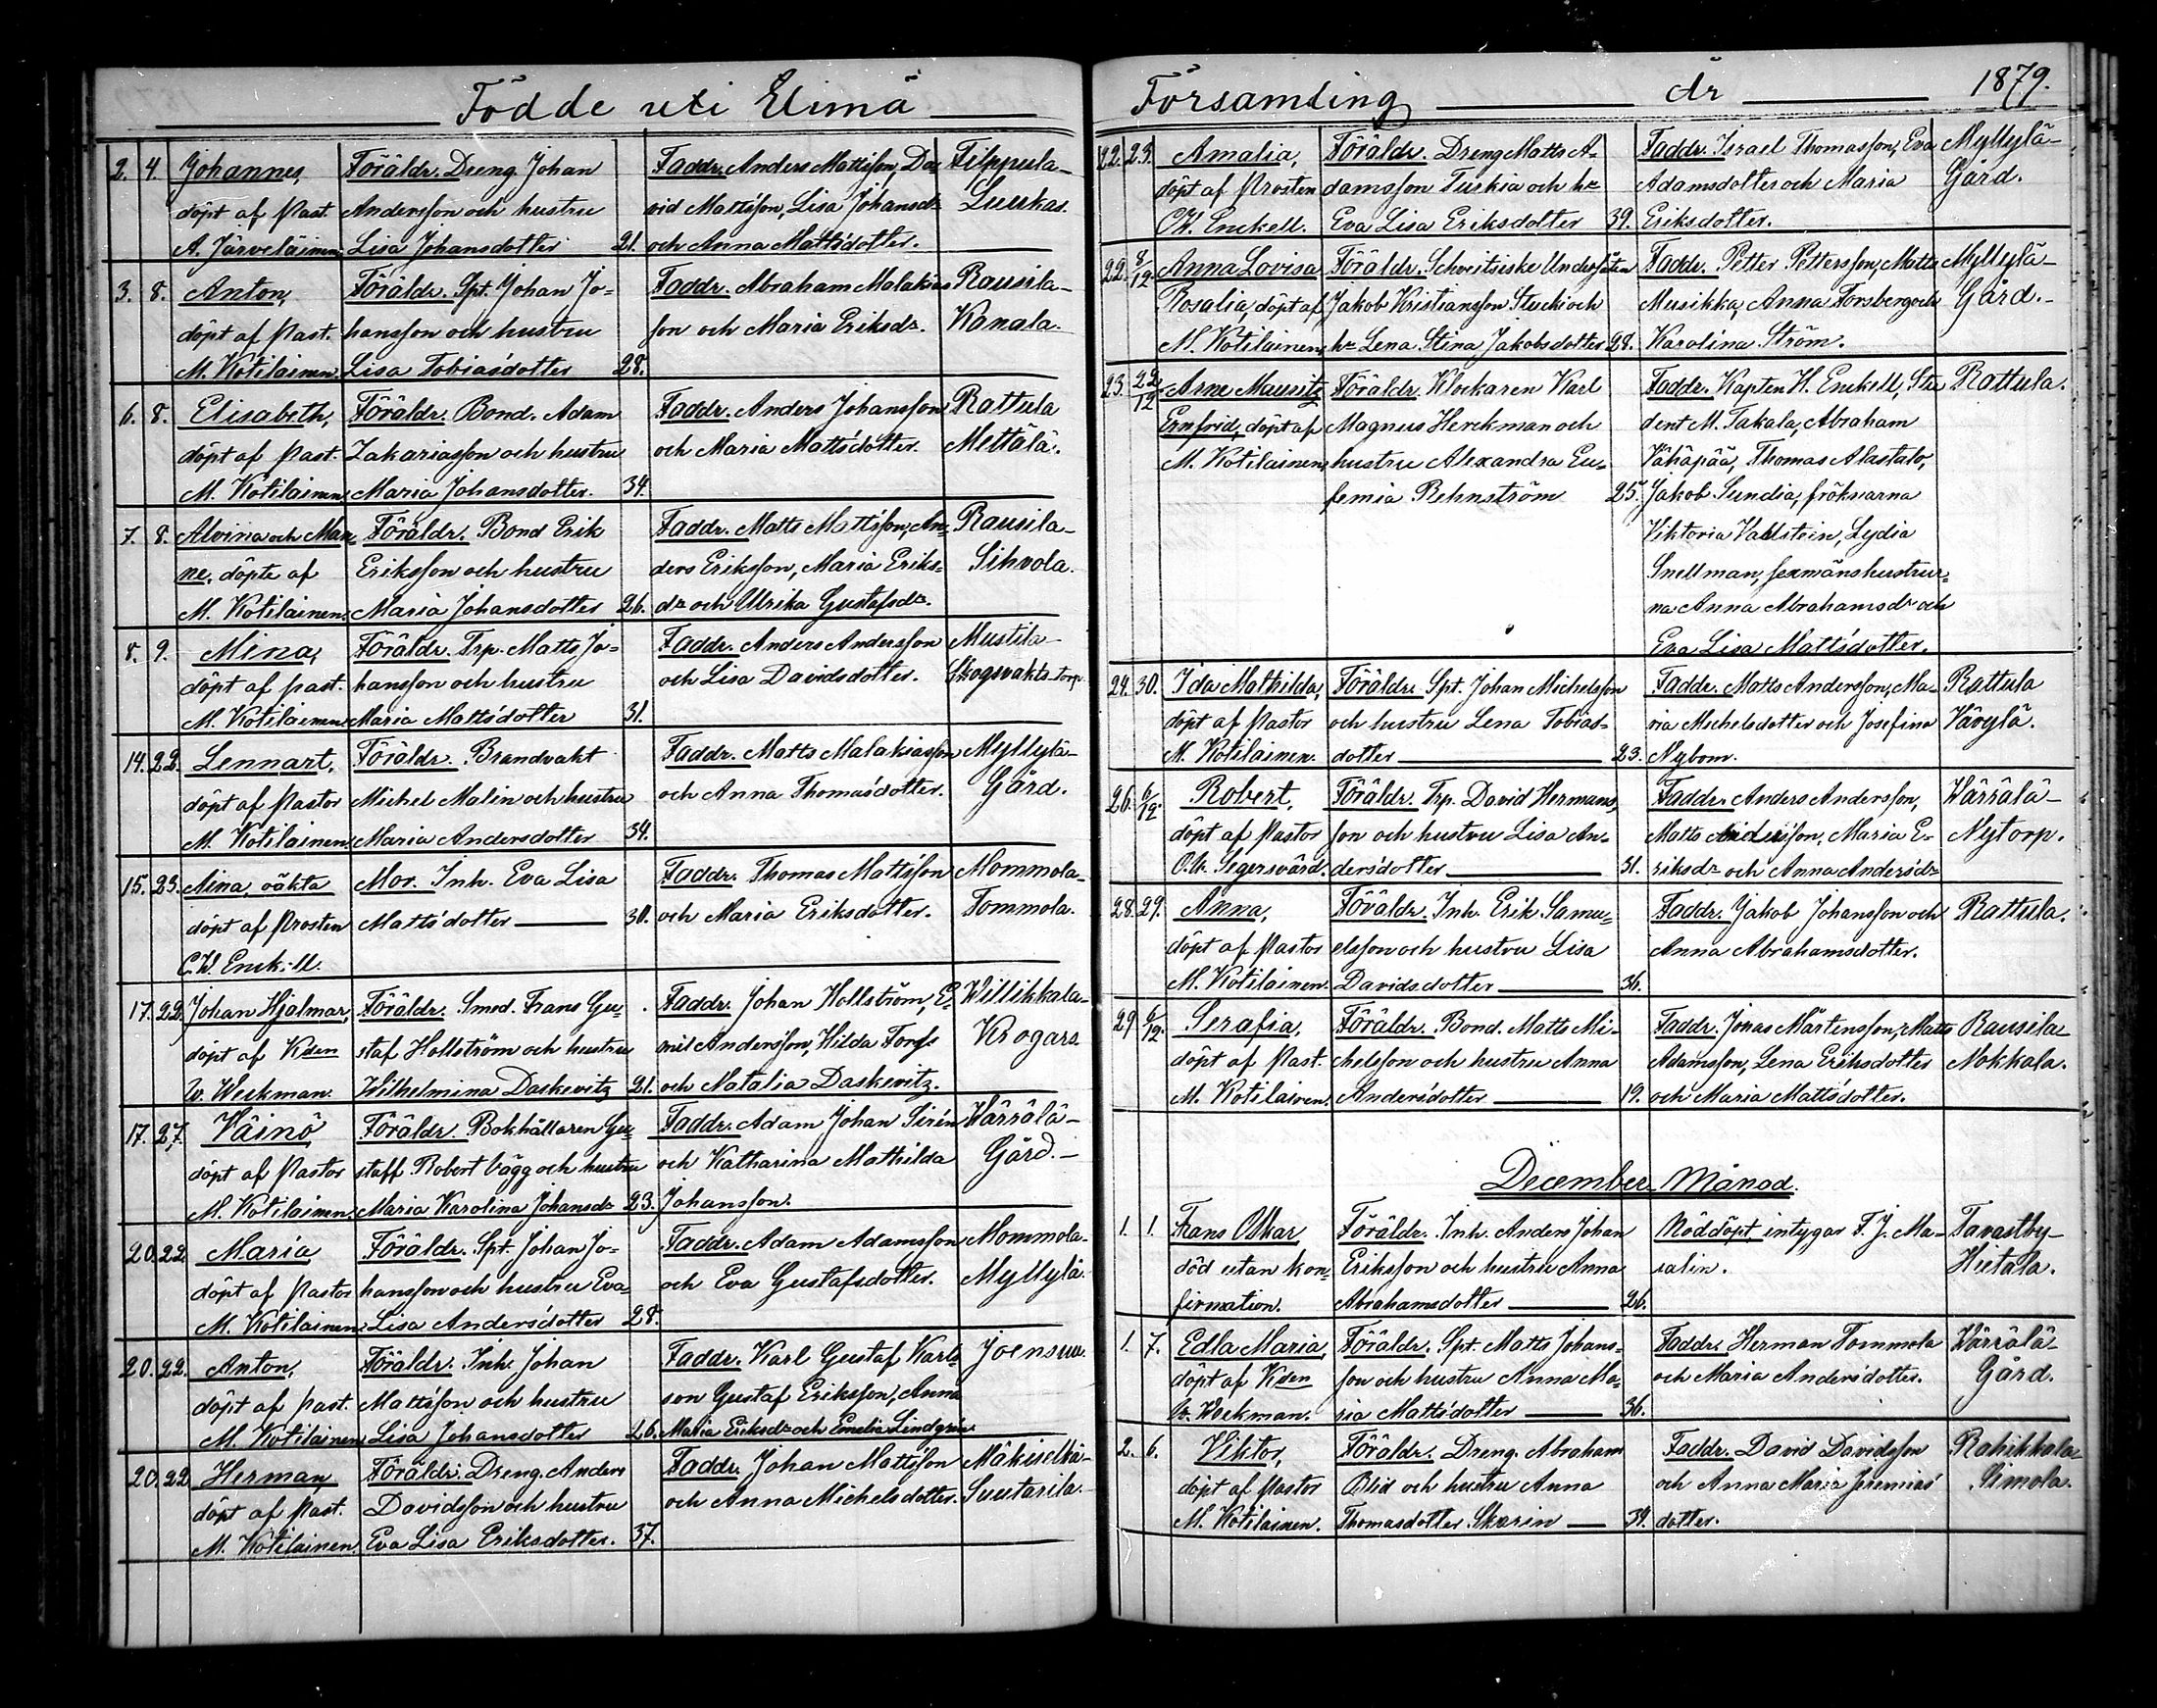 Födde uti Elimä
2. 4. Johannes, Föräldr. Dreng Johan Faddr. Anders Mattsson, Da- Filppula-
döpt af Past. Andersson och hustru vid Mattsson, Lisa Johansdr Luukas.
A. Järveläinen. Lisa Johansdotter 21. och Anna Mattsdotter.
3. 8. Anton, Föräldr. Spt. Johan Jo= Faddr. Abraham Malakias Rausila-
döpt af Past. hansson och hustru son och Maria Eriksdr. Kanala.
M. Kotilainen. Lisa Tobiasdotter 28.
6. 8. Elisabeth, Föräldr. Bond. Adam Faddr. Anders Johansson Rattula
döpt af Past. Zakariasson och hustru och Maria Mattsdotter. Mettälä.
M. Kotilainen Maria Johansdotter. 34.
7. 8. Alvina och Man= Föräldr. Bond Erik Faddr. Matts Mattsson, An= Rausila-
ne, döpte af Eriksson och hustru ders Eriksson, Maria Eriks= Sihvola.
M. Kotilainen. Maria Johansdotter 26. dr och Ulrika Gustafsdr.
8. 9. Mina, Föräldr. Trp. Matts Jo= Faddr. Anders Andersson Mustila-
döpt af past. hansson och hustru och Lisa Davidsdotter. Skogsvakts torp
M. Kotilainen Maria Mattsdotter 31.
14. 22. Lennart, Föräldr. Brandvakt Faddr. Matts Malakiasson Myllylä-
döpt af Pastor Michel Malin och hustru och Anna Thomasdotter. Gård.
M. Kotilainen Maria Andersdotter 34.
15. 23. Mina, oäkta Mor. Inh. Eva Lisa Faddr. Thomas Mattsson Mommola-
döpt af Prosten Mattsdotter 30. och Maria Eriksdotter. Tommola.
C.W. Enckell.
17. 22. Johan Hjalmar, Föräldr. Smed. Frans Gu= Faddr. Johan Hollström, E= Willikkala-
döpt af Kden staf Hollström och hustru mil Andersson, Hilda Forss Krogars.
W. Weckman. Wilhelmina Daskevitz 21. och Natalia Daskevitz.
17. 27. Väinö, Föräldr. Bokhållaren Gu= Faddr. Adam Johan Sirén Wärrälä-
döpt af Pastor staff Robert Vägg och hustru och Katharina Mathilda Gård.-
M. Kotilainen. Maria Karolina Johansdr 23. Johansson.
20. 22. Maria Föräldr. Spt. Johan Jo= Faddr. Adam Adamsson Mommola-
döpt af Pastor hansson och hustru Eva= och Eva Gustafsdotter. Myllylä.
M. Kotilainen Lisa Andersdotter 28.
20. 22. Anton, Föräldr. Inh. Johan Faddr. Karl Gustaf Karls= Joensuu.
döpt af past. Mattsson och hustru son Gustaf Eriksson, Anna
M. Kotilainen Lisa Johansdotter 26. Maria Eriksdr och Emelia Lindgrén
20. 22. Herman, Föräldr. Dreng. Anders Faddr. Johan Mattsson Mäkiselkä-
döpt af Past. Davidsson och hustru och Anna Michelsdotter. Suutarila.
M. Kotilainen. Eva Lisa Eriksdotter. 37.
Församling År 1879.
22. 23. Amalia, Föräldr. Dreng Matts A= Faddr. Israel Thomasson, Eva Myllylä-
döpt af Prosten damsson Turkia och hr Adamsdotter och Maria Gård.
C.W. Enckell. Eva Lisa Eriksdotter 39. Eriksdotter.
22. 8/12 Anna Lovisa Föräldr. Schveitsiske Undersåten Faddr. Petter Pettersson, Matts Myllylä-
Rosalia, döpt af Jakob Kristiansson Stucki och Musikka, Anna Forsberg och Gård.-
M. Kotilainen hr Lena Stina Jakobsdotter 28. Karolina Ström.
23. 22/12 Arne Mauritz Föräldr. Klockaren Karl Faddr. Kapten H. Enckell, Stu Rattula.
Ernfrid, döpt af Magnus Herckman och dent M. Takala, Abraham
M. Kotilainen hustru Alexandra Eu= Vähäpää, Thomas Alastalo,
femia Rehnström 25. Jakob Sundia, fröknarna
Viktoria Vallstein, Lydia
Snellman, sexmanshustrur=
na Anna Abrahamsdr och
Eva Lisa Mattsdotter.
24. 30. Ida Mathilda, Föräldr. Spt. Johan Michelsson Faddr. Matts Andersson, Ma- Rattula
döpt af Pastor och hustru Lena Tobias= ria Michelsdotter och Josefina Vävylä.
M. Kotilainen. dotter 23. Nybom.
26. 6/12 Robert, Föräldr. Trp. David Hermans= Faddr. Anders Andersson, Wärrälä-
döpt af Pastor son och hustru Lisa An= Matts Andersson, Maria E= Nytorp.
O.W. Segersvärd. dersdotter 31. riksdr och Anna Andersdr
28. 29. Anna, Föräldr. Inh. Erik Samu= Faddr. Jakob Johansson och Rattula.
döpt af Pastor elsson och hustru Lisa Anna Abrahamsdotter.
M. Kotilainen. Davidsdotter 36.
29 6/12. Serafia, Föräldr. Bond. Matts Mi= Faddr. Jonas Mårtensson, Matts Rausila-
döpt af Past. chelsson och hustru Anna Adamsson, Lena Eriksdotter Nokkala.
M. Kotilainen. Andersdotter 19. och Maria Mattsdotter.
December Månad.
1. 1. Frans Oskar, Föräldr. Inh. Anders Johan Nöddöpt, intygar F. J. Ma- Tavastby-
död utan kon= Eriksson och hustru Anna salin. Hietala.
firmation. Abrahamsdotter 26.
1. 7. Edla Maria, Föräldr. Spt. Matts Johans= Faddr. Herman Tommola Wärrälä-
döpt af Kden son och hustru Anna Ma= och Maria Andersdotter. Gård.
W. Weckman. ria Mattsdotter 36.
2. 6. Viktor, Föräldr. Dreng. Abraham Faddr. David Davidsson Rahikkala
döpt af Pastor Blid och hustru Anna och Anna Maria Jeremias= Simola.
M. Kotilainen. Thomasdotter Skarin 34. dotter.